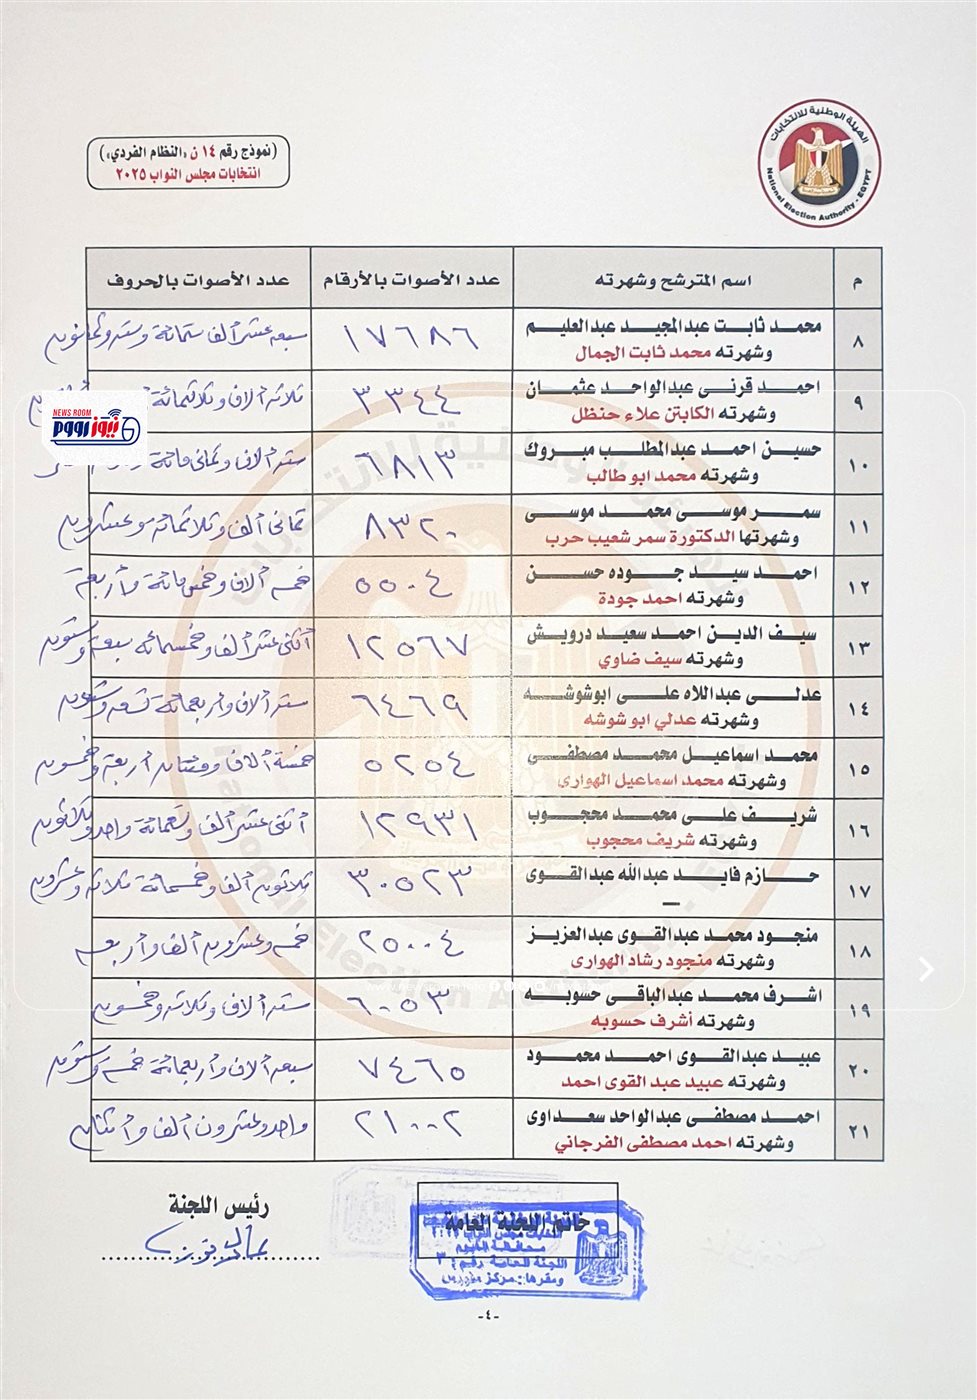 الهيئة الوطنية للانتخابات
National Election Authority - EGYPT
(نموذج رقم ١٤ ن «النظام الفردي»)
انتخابات مجلس النواب ٢٠٢٥
م اسم المترشح وشهرته عدد الأصوات بالأرقام عدد الأصوات بالحروف
٨ محمد ثابت عبدالمجيد عبدالعليم ١٧٦٨٦ سبعه عشر ألف ستمائة وسته وثمانون
وشهرته محمد ثابت الجمال
٩ احمد قرنى عبدالواحد عثمان ٣٣٤٤ ثلاثه آلاف وثلاثمائة
وشهرته الكابتن علاء حنظل
١٠ حسين احمد عبدالمطلب مبروك ٦٨١٣ سته آلاف وثمانى مائة
وشهرته محمد ابو طالب
١١ سمر موسى محمد موسى ٨٣٢٠ ثمانى ألف وثلاثمائه وعشرون
وشهرتها الدكتورة سمر شعيب حرب
١٢ احمد سيد جوده حسن ٥٥٠٤ خمسه آلاف وخمس مائة وأربعة
وشهرته احمد جودة
١٣ سيف الدين احمد سعيد درويش ١٢٥٦٧ أثنى عشر ألف وخمسمائه سبعة وستون
وشهرته سيف ضاوي
١٤ عدلى عبداللاه على ابوشوشه ٦٤٦٩ سته آلاف وأربعمائة تسعه وستون
وشهرته عدلي ابو شوشه
١٥ محمد اسماعيل محمد مصطفى ٥٢٥٤ خمسة آلاف ومئتان أربعة وخمسون
وشهرته محمد اسماعيل الهوارى
١٦ شريف على محمد محجوب ١٢٩٣١ أثنى عشر ألف وتسعمائة واحد وثلاثون
وشهرته شريف محجوب
١٧ حازم فايد عبدالله عبدالقوى ٣٠٥٢٣ ثلاثون ألف وخمسمائة ثلاثه وعشرون
—
١٨ منجود محمد عبدالقوى عبدالعزيز ٢٥٠٠٤ خمسه وعشرون ألف وأربعه
وشهرته منجود رشاد الهوارى
١٩ اشرف محمد عبدالباقى حسوبه ٦٠٥٣ سته آلاف وثلاثه وخمسون
وشهرته أشرف حسوبه
٢٠ عبيد عبدالقوى احمد محمود ٧٤٦٥ سبعه آلاف وأربعمائة خمسه وستون
وشهرته عبيد عبد القوى احمد
٢١ احمد مصطفى عبدالواحد سعداوى ٢١٠٠٢ واحد وعشرون ألف وأثنان
وشهرته احمد مصطفى الفرجاني
NEWS ROOM
نيوز رووم
رئيس اللجنة
خاتم اللجنة العامة
محافظة الفيوم
اللجنة العامة رقم ٣
ومقرها: مركز
-٤-